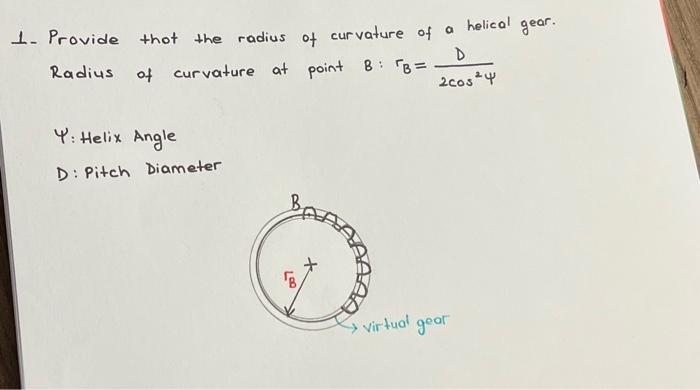 1- Provide thot the radius of curvature of a helical gear.
Radius of curvature at point B: rB = D / 2cos²Ψ
Ψ: Helix Angle
D: Pitch Diameter
B
rB
virtual gear